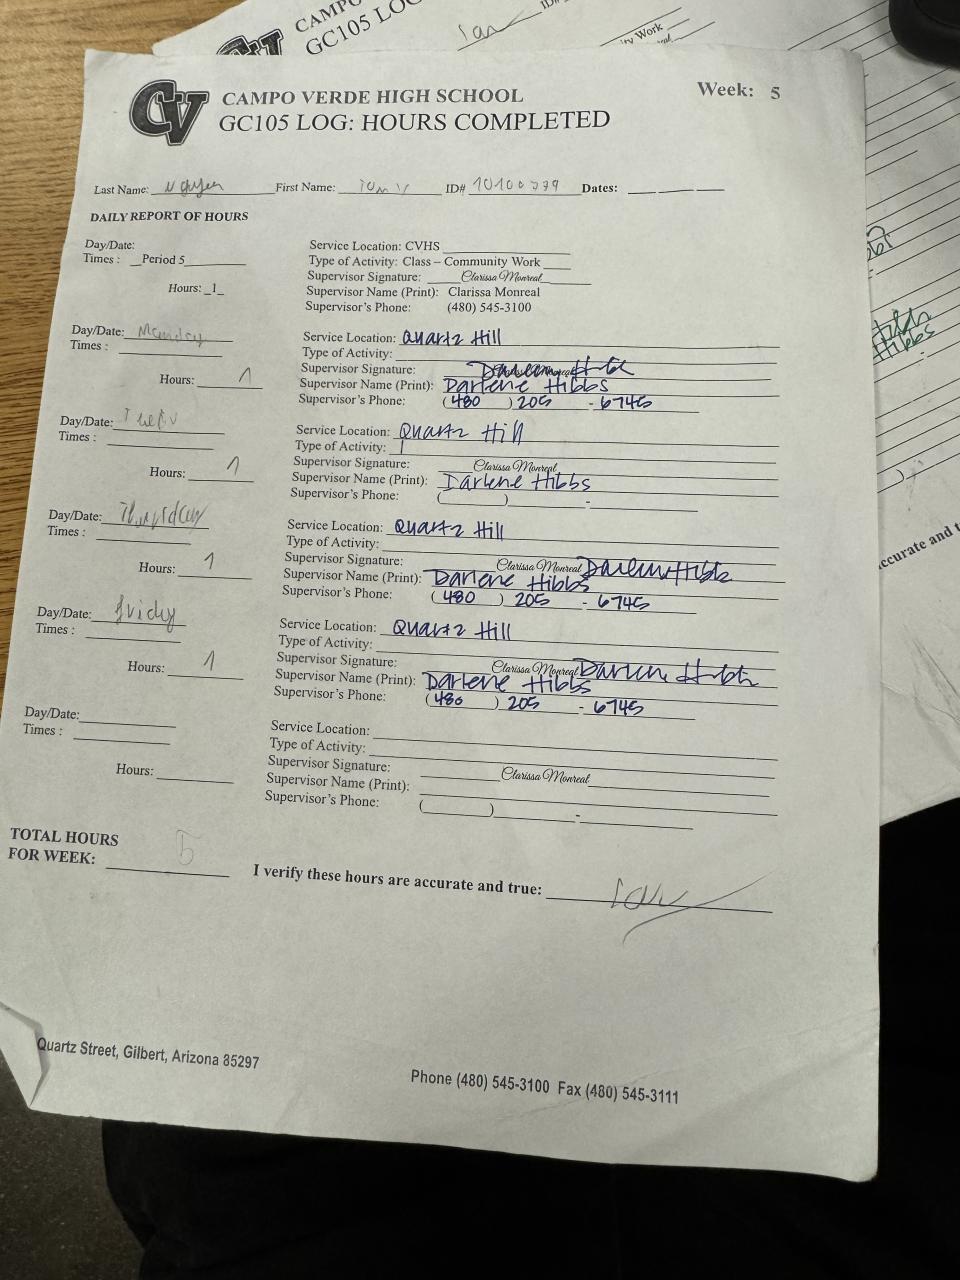 CAMPO
GC105 LO
CV
CAMPO VERDE HIGH SCHOOL
Week: 5
GC105 LOG: HOURS COMPLETED
Last Name: Nguyen First Name: ID# Dates:
DAILY REPORT OF HOURS
Day/Date:
Times : Period 5
Hours: 1
Service Location: CVHS
Type of Activity: Class – Community Work
Supervisor Signature: Clarissa Monreal
Supervisor Name (Print): Clarissa Monreal
Supervisor's Phone: (480) 545-3100
Day/Date: Monday
Times :
Hours: 1
Service Location: Quartz Hill
Type of Activity:
Supervisor Signature: Clarissa Monreal Darlene Hibbs
Supervisor Name (Print): Darlene Hibbs
Supervisor's Phone: (480) 205 - 6745
Day/Date:
Times :
Hours: 1
Service Location: Quartz Hill
Type of Activity:
Supervisor Signature: Clarissa Monreal
Supervisor Name (Print): Darlene Hibbs
Supervisor's Phone: ( ) -
Day/Date: Thursday
Times :
Hours: 1
Service Location: Quartz Hill
Type of Activity:
Supervisor Signature: Clarissa Monreal Darlene Hibbs
Supervisor Name (Print): Darlene Hibbs
Supervisor's Phone: (480) 205 - 6745
Day/Date: friday
Times :
Hours: 1
Service Location: Quartz Hill
Type of Activity:
Supervisor Signature: Clarissa Monreal Darlene Hibbs
Supervisor Name (Print): Darlene Hibbs
Supervisor's Phone: (480) 205 - 6745
Day/Date:
Times :
Hours:
Service Location:
Type of Activity:
Supervisor Signature: Clarissa Monreal
Supervisor Name (Print):
Supervisor's Phone: ( ) -
TOTAL HOURS
FOR WEEK: 5
I verify these hours are accurate and true:
Quartz Street, Gilbert, Arizona 85297
Phone (480) 545-3100 Fax (480) 545-3111
ccurate and t
Hibbs